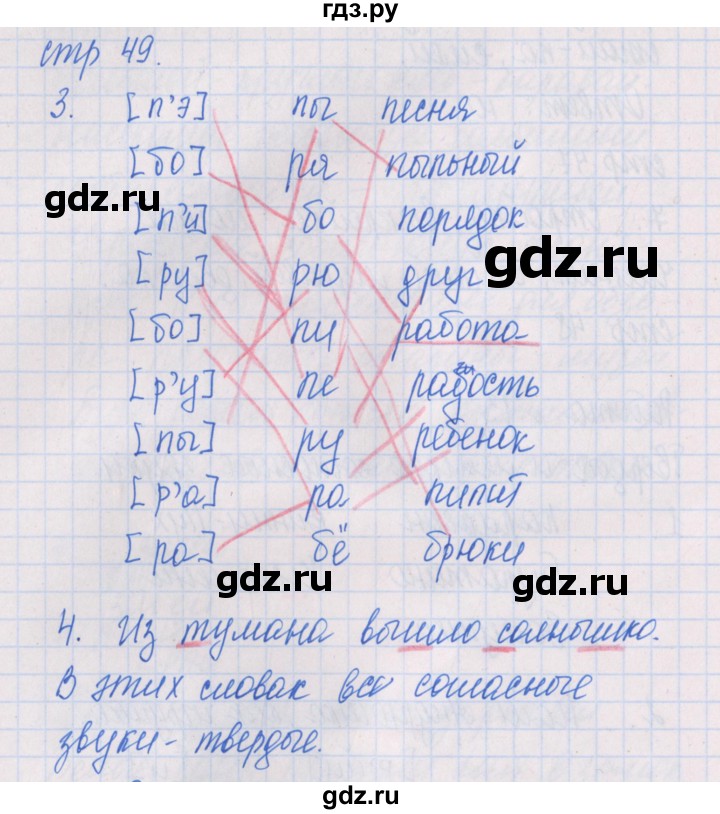 гдз.ру
стр 49.
3. [п'э] пы песня
[бо] ря пыльный
gdz.ru
[п'и] бо порядок
gdz.ru
[ру] рю друг
[бо] пи работа
[р'у] пе радость
[пы] ру ребенок
[р'а] ра пилит
[ра] бё брюки
gdz.ru gdz.ru
4. Из тумана вышло солнышко.
В этих словах все согласные
звуки - твердые.
gdz.ru